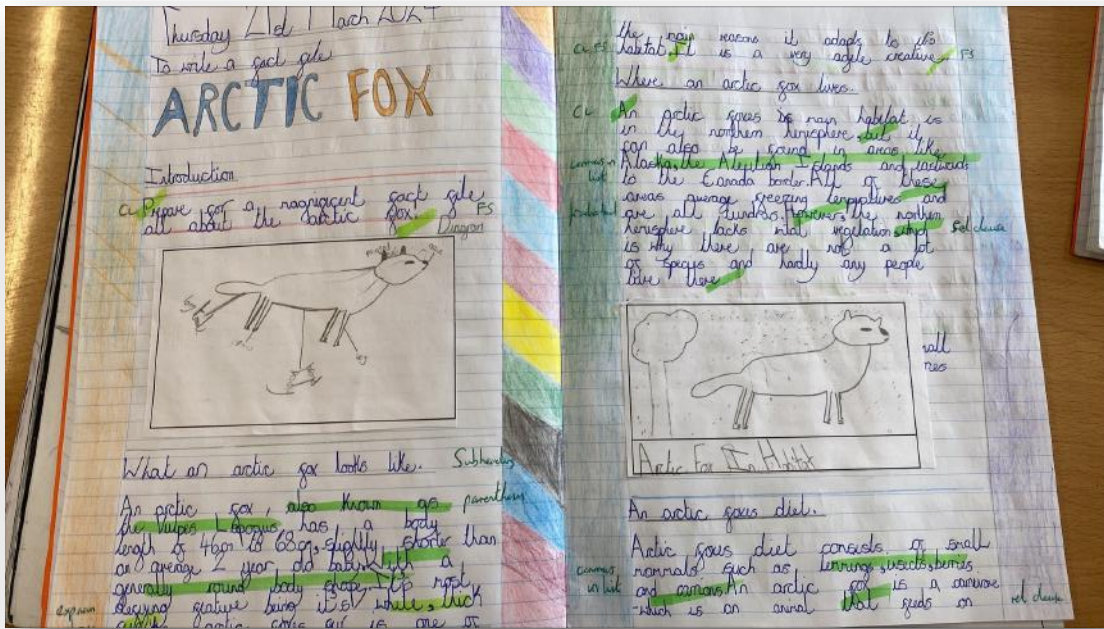 Thursday 21st March 2024
To write a fact file
ARCTIC FOX
Introduction
CL Prepare for a magnificent fact file FS
all about the arctic fox.
Diagram
What an arctic fox looks like. Subheading
An arctic fox, also known as parenthesis
the Vulpes Lagopus, has a body
length of 46cm to 68cm, slightly shorter than
an average 2 year old baby with a
generally round body shape. It's most
defying feature being it's white, thick
fur is one of
the main reasons it adapts to it's
CL FS habitat. It is a very agile creature. FS
Where an arctic fox lives.
CL An arctic foxes main habitat is
in the northern hemisphere, but it
can also be found in areas like
commas in list Alaska, the Aleutian Islands and
to the Canada border. All of these
areas average freezing temperatures and
are all tundras. However, the northern
hemisphere lacks vital vegetation which rel clause
is why there are not a lot
of species and hardly any people
live there.
Arctic Fox In Habitat
An arctic foxes diet.
Arctic foxes diet consists of small
mammals such as lemmings, insects, berries
commas in list and carrions. An arctic fox is a carnivore
which is an animal that feeds on rel clause